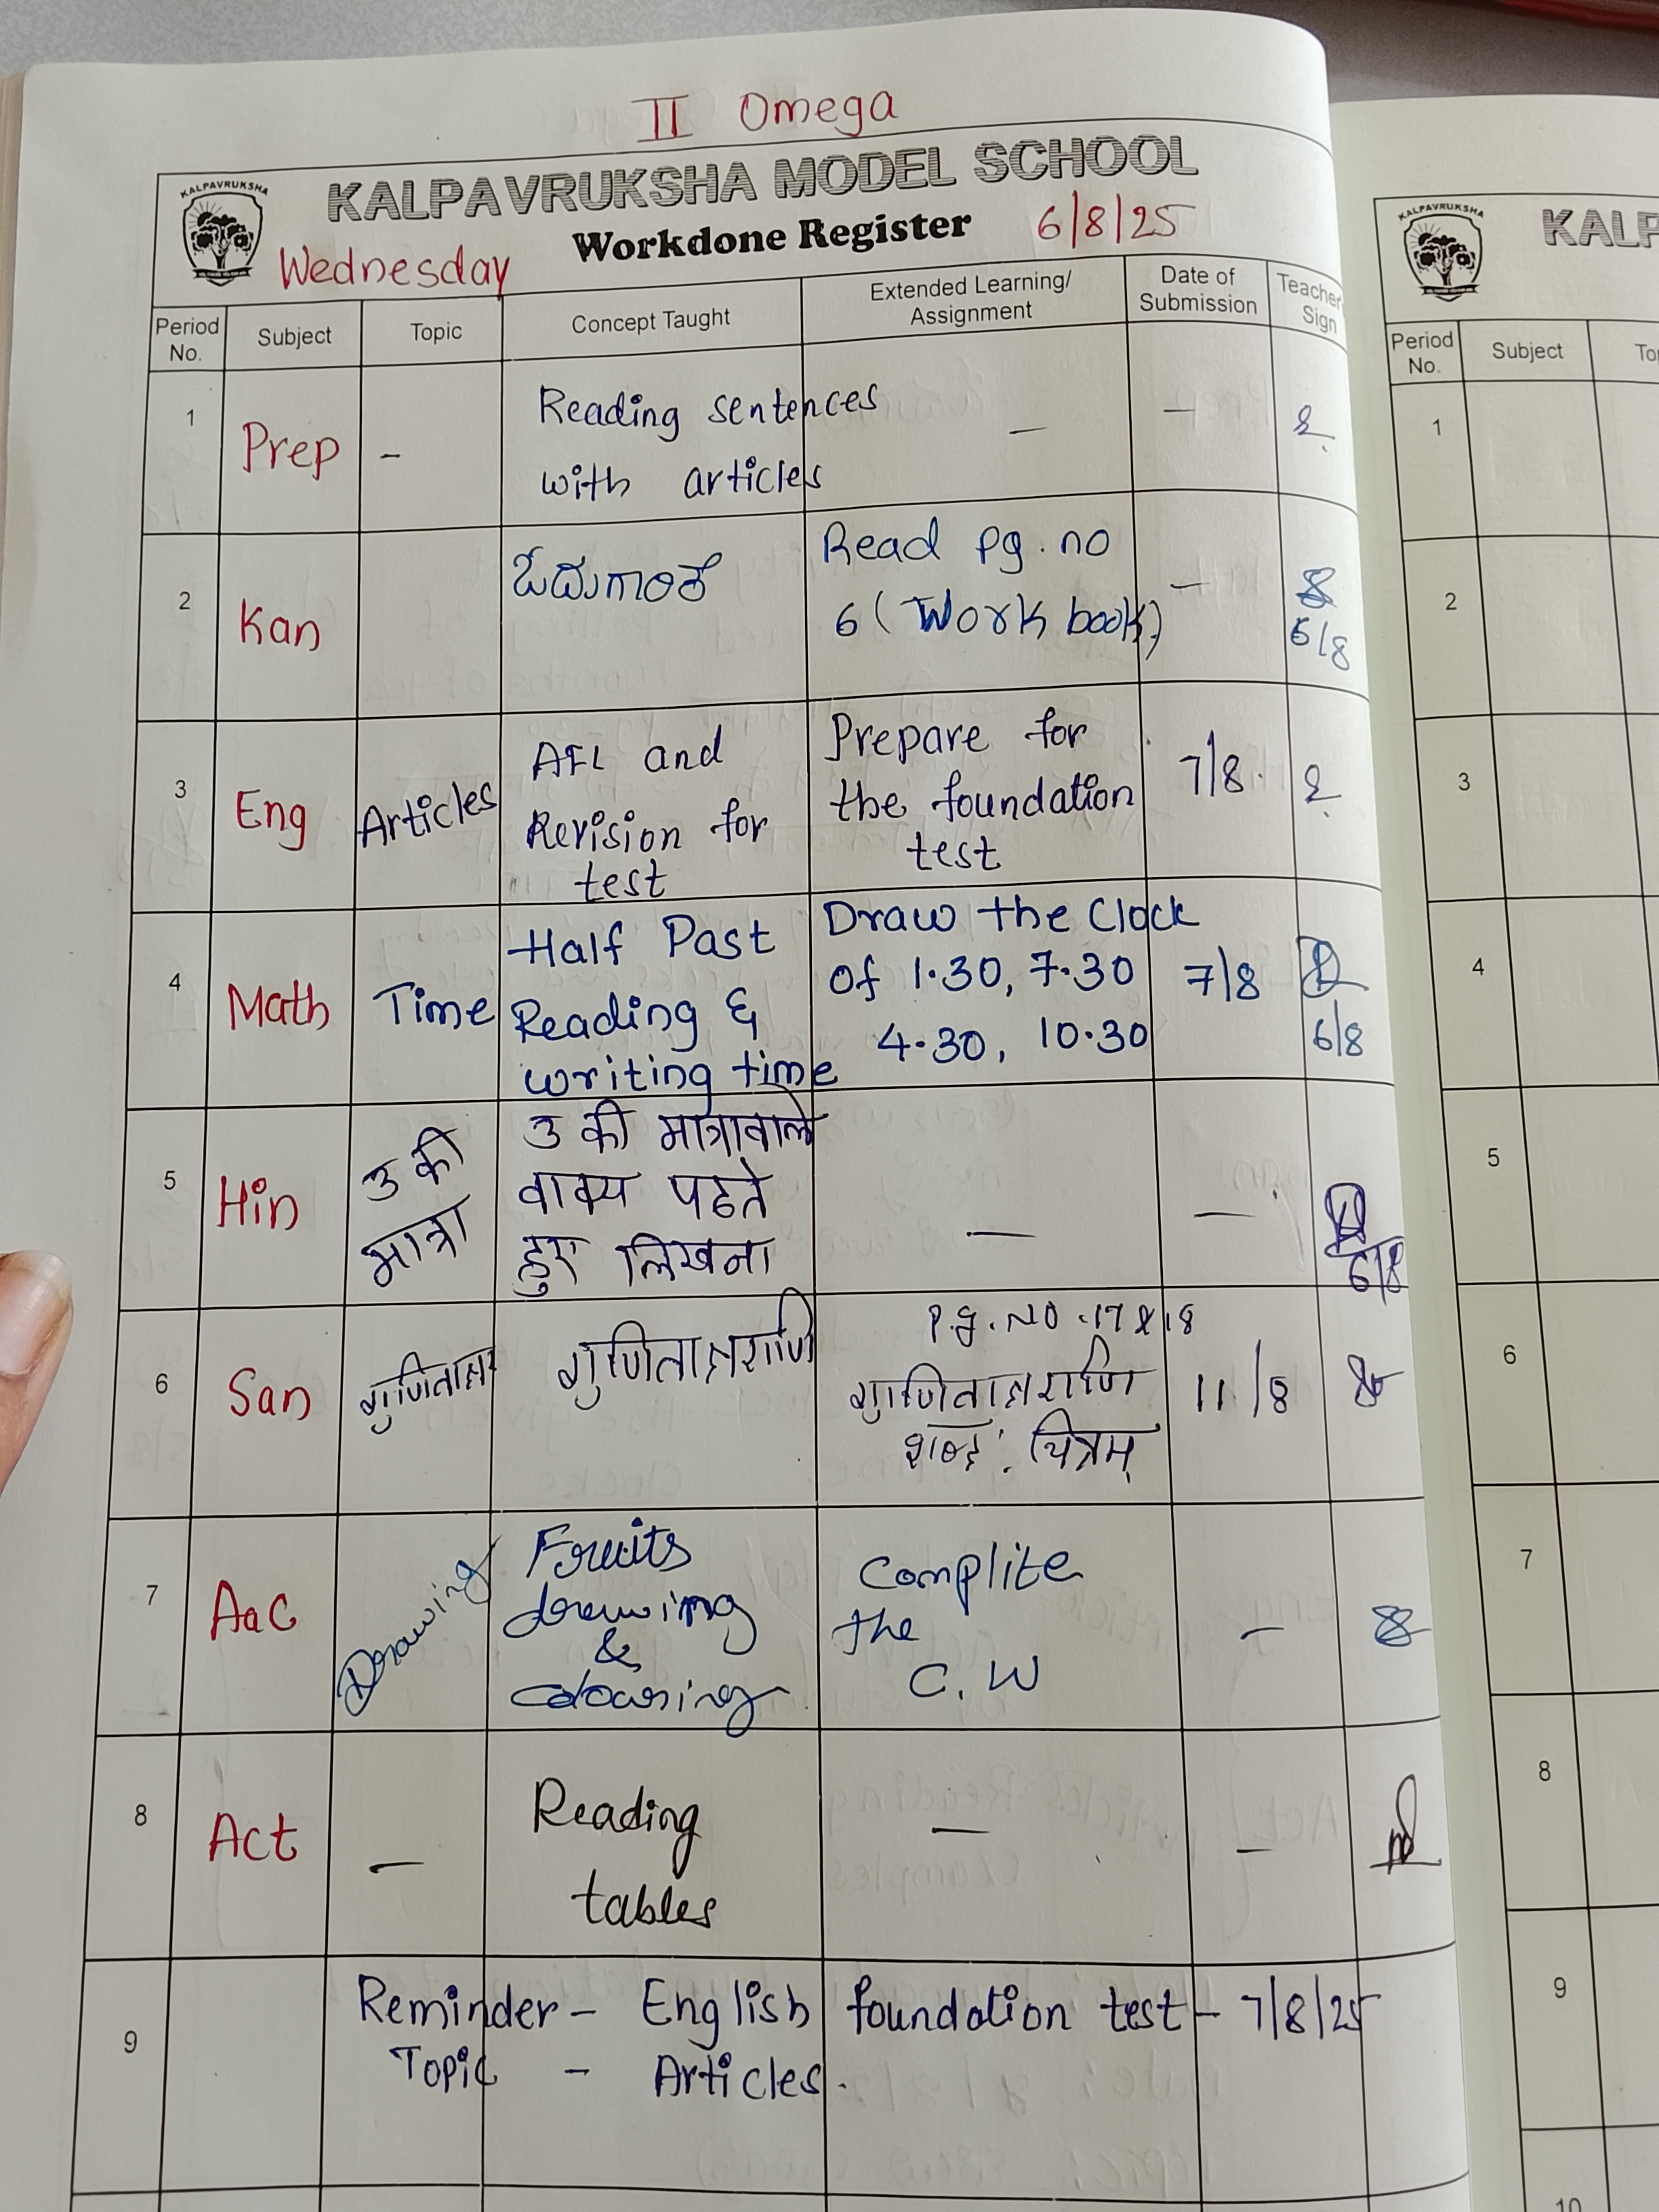 II Omega
KALPAVRUKSHA
KALPAVRUKSHA MODEL SCHOOL
Workdone Register
6/8/25
Wednesday
Period No.
Subject
Topic
Concept Taught
Extended Learning/
Assignment
Date of
Submission
Teacher
Sign
1
Prep
-
Reading sentences
with articles
—
—
2
Kan
ಓದುಗಾರಿಕೆ
Read pg. no
6 (Work book)
—
6/8
3
Eng
Articles
AFL and
Revision for
test
Prepare for
the foundation
test
7/8.
4
Math
Time
Half Past
Reading &
writing time
Draw the Clock
Of 1.30, 7.30
4.30, 10.30
7/8
6/8
5
Hin
उ की
मात्रा
उ की मात्रावाले
वाक्य पढते
हुए लिखना
—
—
6/8
6
San
गुणिताक्ष
गुणिताक्षराणि
P.g. NO .17 & 18
गुणिताक्षराणि
शब्द: चित्रम्
11/8
7
AaC
Drawing
Fruits
drewing
&
colouring
Complite
the
C.W
—
8
Act
—
Reading
tables
—
—
9
Reminder - English foundation test - 7/8/25
Topic - Articles.
KALPAVRUKSHA
KALP
Period
No.
Subject
To
1
2
3
4
5
6
7
8
9
10